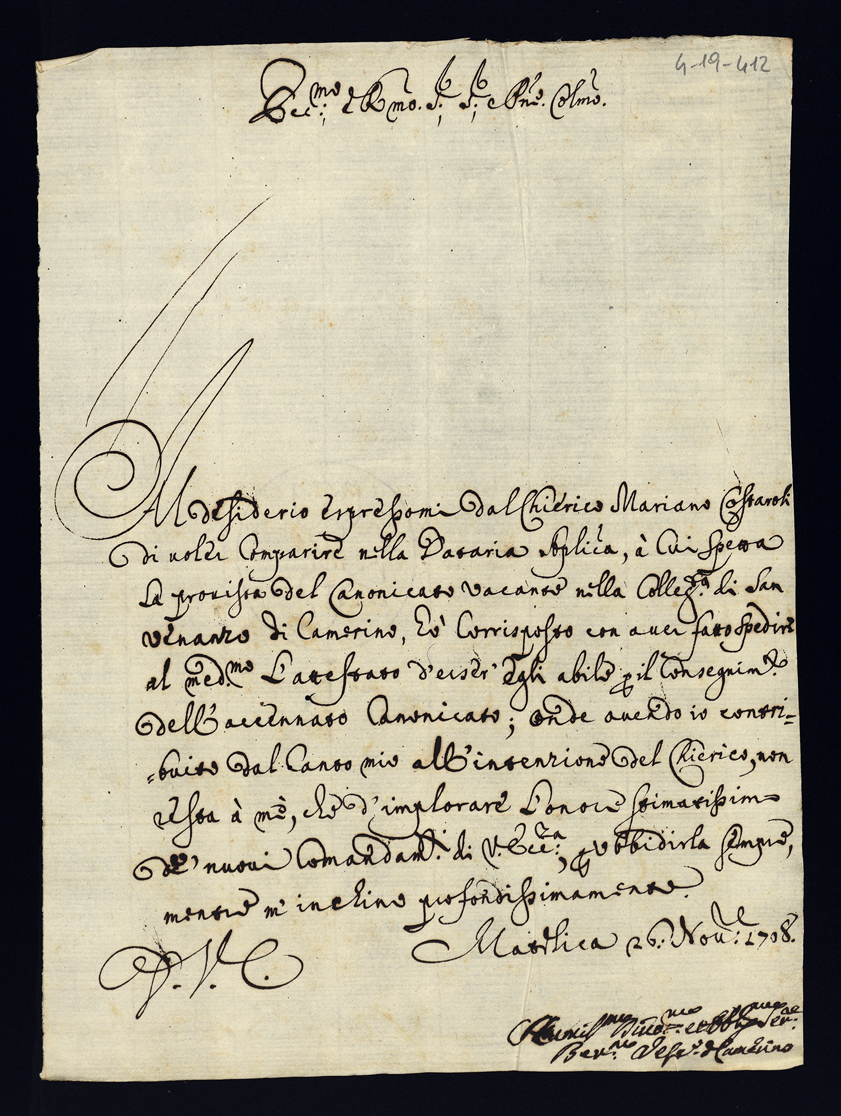 4-19-412
Ecc.mo e Rmo. S.r S.r e Pne. Colmo.
Al desiderio espressomi dal Chierico Mariano Costaroli
di voler comparire nella Dataria Aplica, à cui spetta
la provista del Canonicato vacante nella Colleg.ta di San
Venanzo di Camerino, hò corrisposto con aver fatto spedire
al med.mo l'attestato d'esser' egli abile p il conseguim.to
dell'accennato Canonicato; onde avendo io contri=
=buito dal canto mio all'intenzione del Chierico, non
resta à mè, che d'implorare l'onore stimatissimo
de' nuovi comandam.ti di V. Ecc.za, p ubbidirla sempre,
mentre m'inchino profondissimamente.
Matelica 26. Nov.: 1708.
D. V. E.
Humil.mo Div.mo et Obbl.mo Ser.re
Ber.no Vesc.o di Camerino